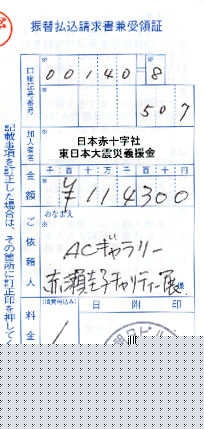 振替払込請求書兼受領証
口座記号番号
00140 8
507
加入者名
日本赤十字社
東日本大震災義援金
金額
千 百 十 万 千 百 十 円
¥114300
ご依頼人
おなまえ
ACギャラリー
赤瀬圭子チャリティー展 様
料金
(消費税込み)
日 附 印
記載事項を訂正した場合は、その箇所に訂正印を押してく